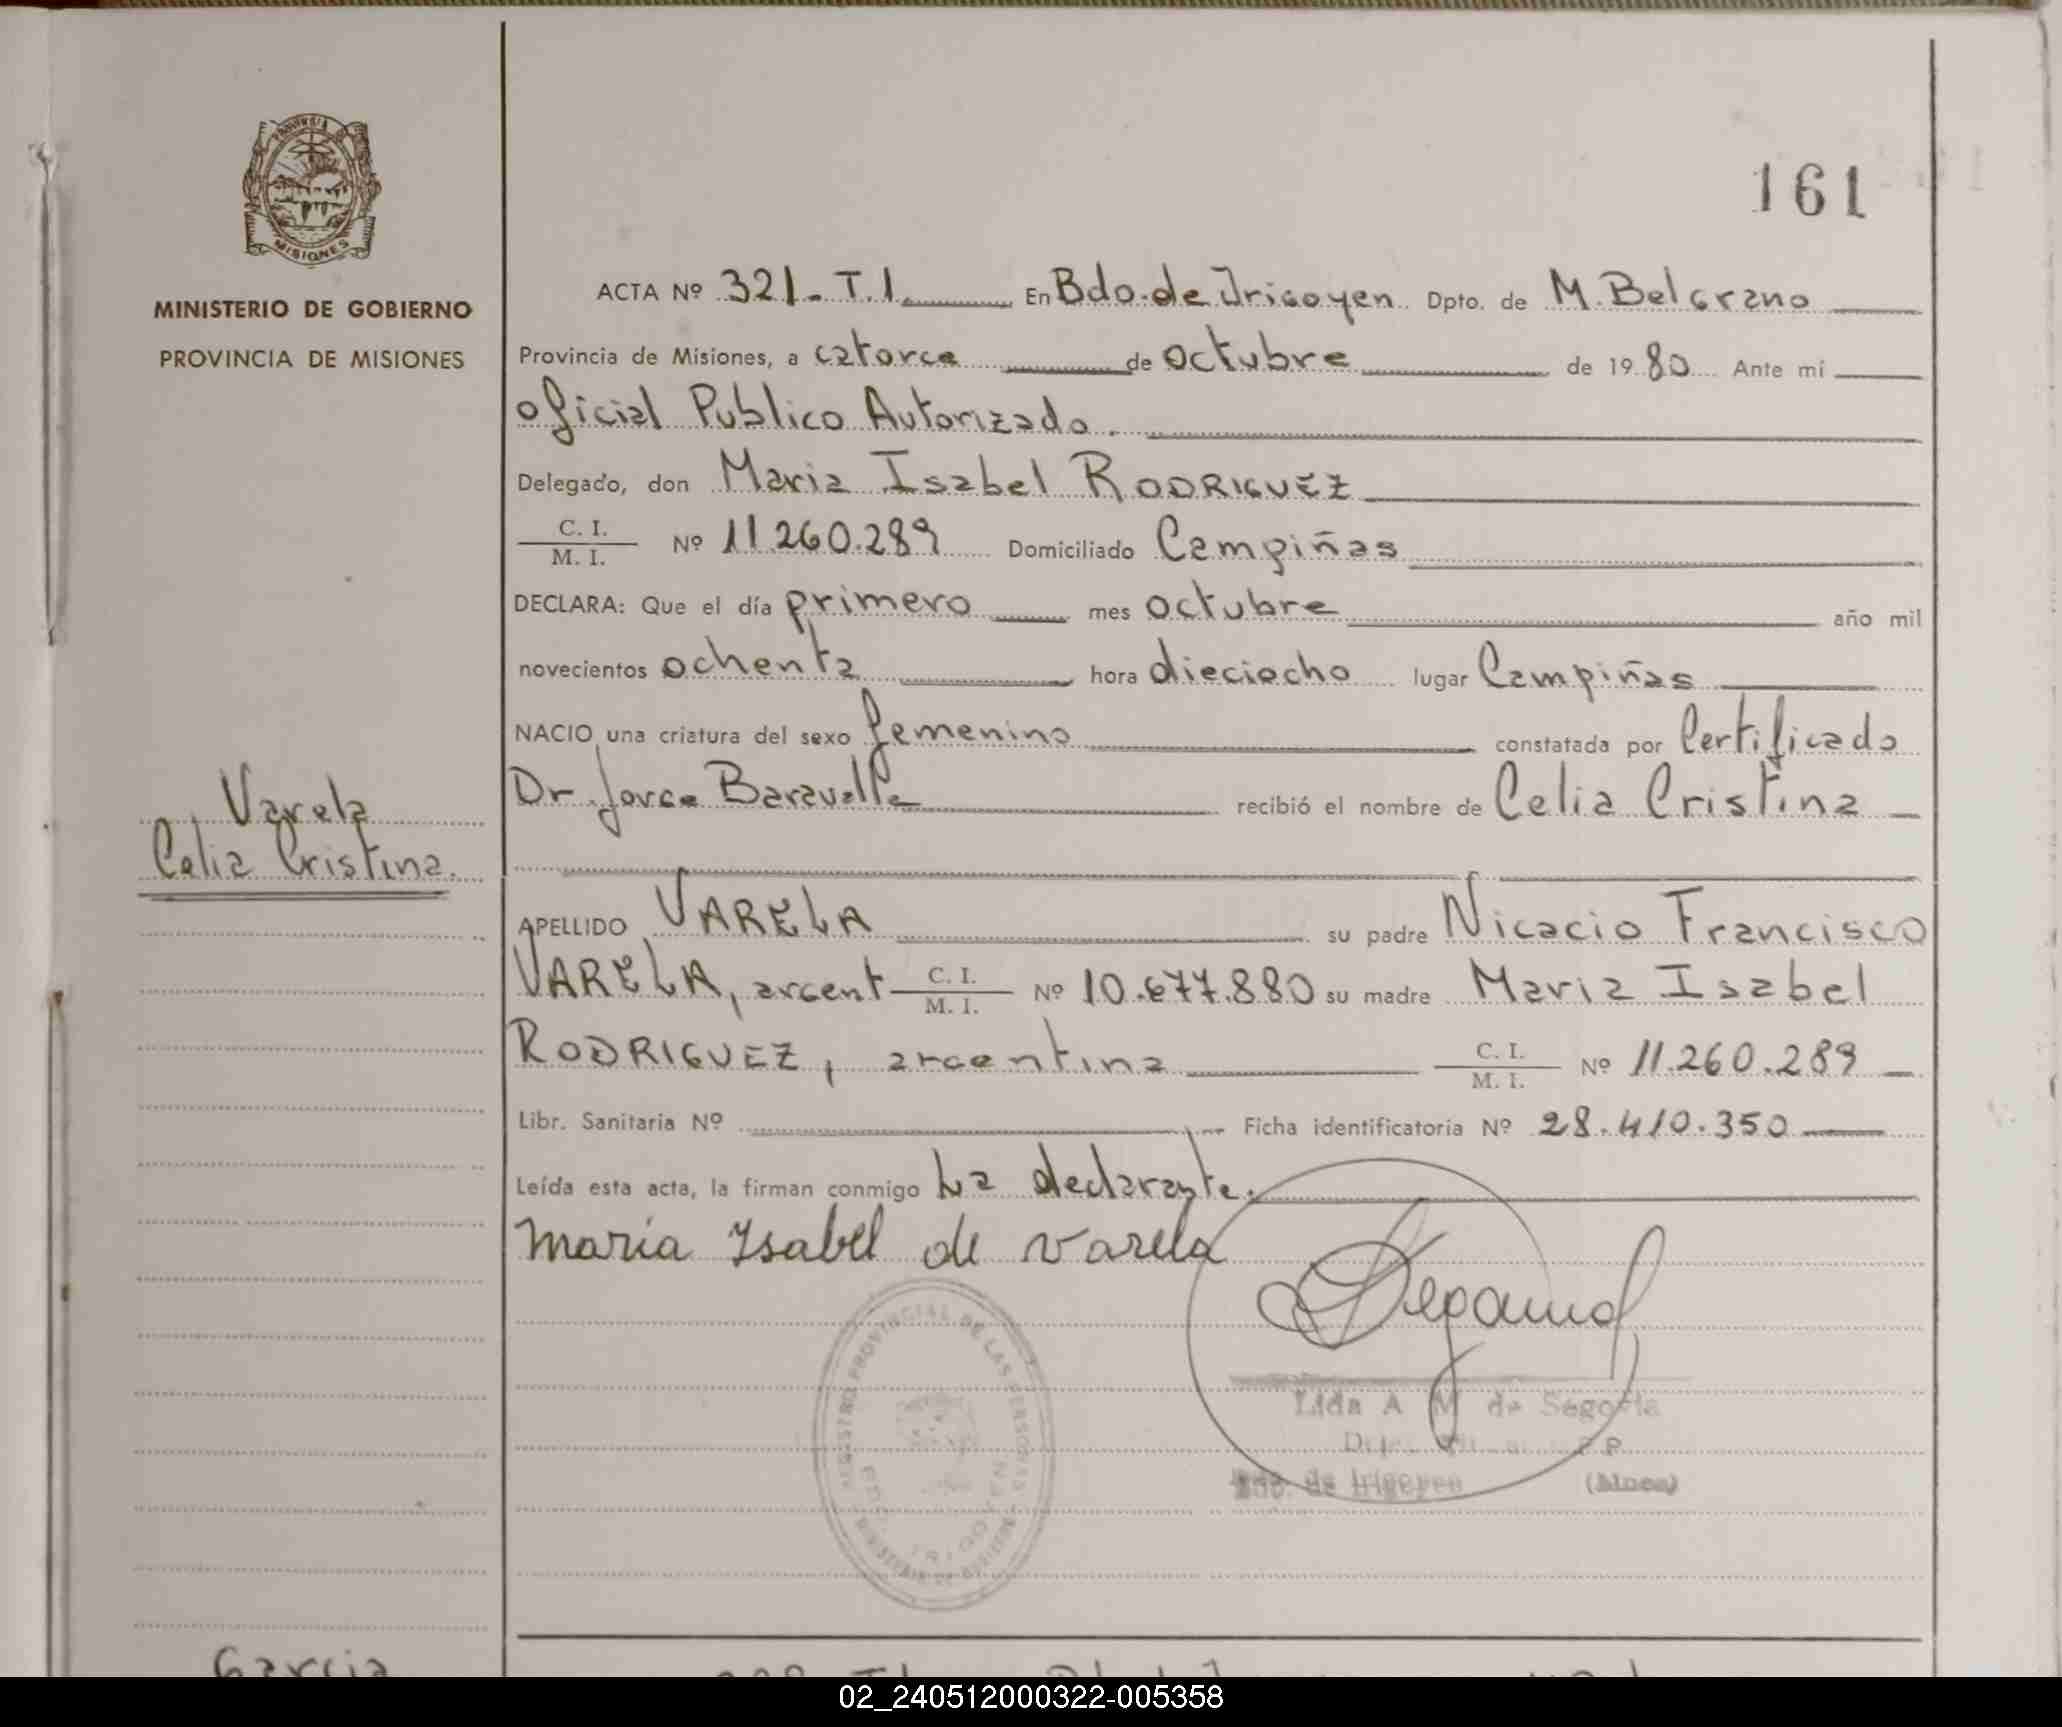 PROVINCIA
MISIONES
MINISTERIO DE GOBIERNO
PROVINCIA DE MISIONES
161
ACTA Nº 321 - T. I. En Bdo. de Irigoyen Dpto. de M. Belgrano
Provincia de Misiones, a catorce de octubre de 19 80 Ante mí
oficial Publico Autorizado.
Delegado, don Maria Isabel RODRIGUEZ
C. I.
M. I. Nº 11.260.289 Domiciliado Campiñas
DECLARA: Que el día primero mes octubre año mil
novecientos ochenta hora dieciocho lugar Campiñas
NACIO una criatura del sexo femenino constatada por Certificado
Dr. Jorge Baravalle recibió el nombre de Celia Cristina
Varela
Celia Cristina.
APELLIDO VARELA su padre Nicacio Francisco
VARELA, argent C. I. M. I. Nº 10.677.880 su madre Maria Isabel
RODRIGUEZ, argentina C. I. M. I. Nº 11.260.289
Libr. Sanitaria Nº Ficha identificatoria Nº 28.410.350
Leída esta acta, la firman conmigo La declarante.
maría Ysabel de varela
REGISTRO PROVINCIAL DE LAS PERSONAS
MINISTERIO DE GOBIERNO
Lida A M de Segovia
Bdo. de Irigoyen (Mnes)
Garcia
02_240512000322-005358